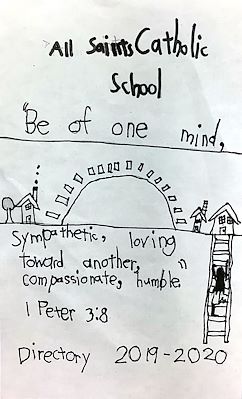 All Saints Catholic
School
"Be of one mind,
Sympathetic, loving
toward another,
compassionate, humble"
1 Peter 3:8
Directory 2019-2020